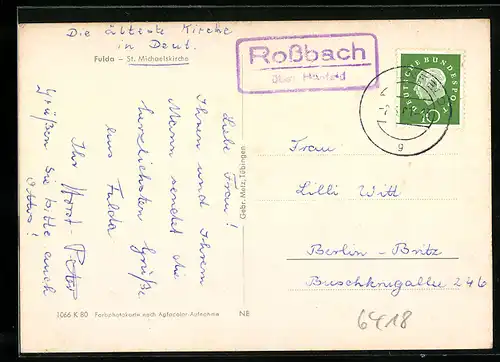 Die älteste Kirche
in Deut.
Fulda – St. Michaelskirche
Roßbach
über Hünfeld
DEUTSCHE BUNDESPOST
10
g
Liebe Frau!
Ihnen und Ihrem
Mann sendet die
herzlichsten Grüße
aus Fulda
Ihr Horst-Peter
Grüßen Sie bitte auch
Gebr. Metz, Tübingen
Frau
Lilli Witt
Berlin-Britz
Buschkrugallee 246
1066 K 80 Farbphotokarte nach Agfacolor-Aufnahme NB
6418